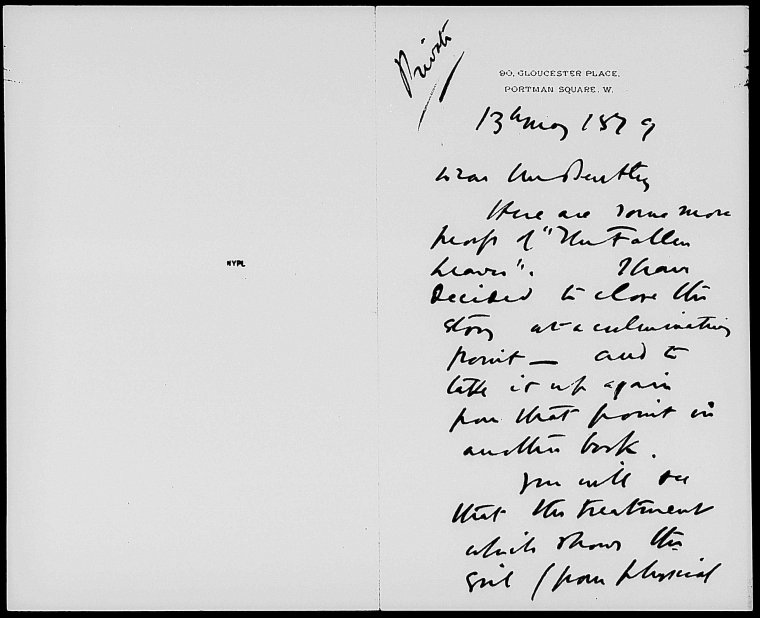 NYPL
Private
90, GLOUCESTER PLACE,
PORTMAN SQUARE. W.
13th May 1879
Dear Mr Bentley
Here are some more
proofs of "The Fallen
Leaves". I have
decided to close the
story at a culminating
point — and to
take it up again
from that point in
another book.
You will see
that the treatment
which shows the
girl (from physical